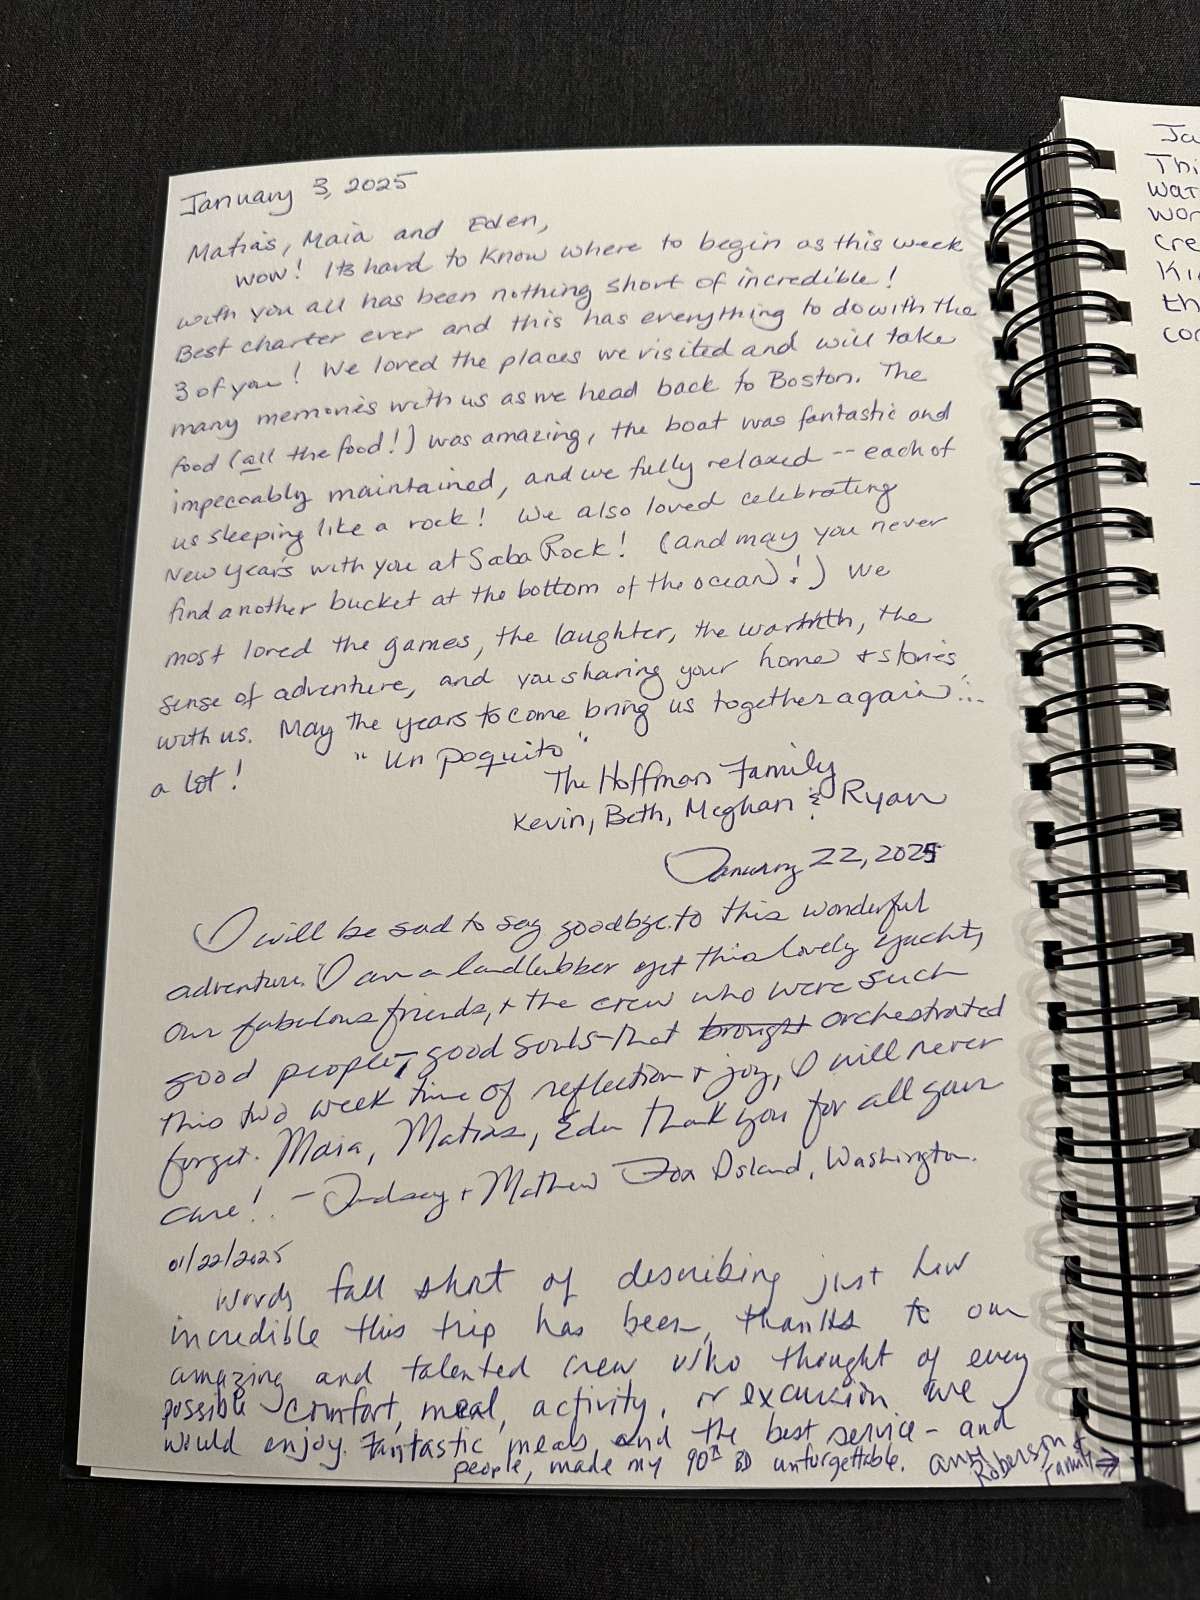 January 3, 2025
Matias, Maia and Eden,
Wow! Its hard to know where to begin as this week
with you all has been nothing short of incredible!
Best charter ever and this has everything to do with the
3 of you! We loved the places we visited and will take
many memories with us as we head back to Boston. The
food (all the food!) was amazing, the boat was fantastic and
impeccably maintained, and we fully relaxed -- each of
us sleeping like a rock! We also loved celebrating
New Years with you at Saba Rock! (and may you never
find another bucket at the bottom of the ocean!) We
most loved the games, the laughter, the warmth, the
sense of adventure, and you sharing your home & stories
with us. May the years to come bring us together again...
a lot! "Un poquito"
The Hoffman Family
Kevin, Beth, Meghan & Ryan
January 22, 2025
I will be sad to say goodbye to this wonderful
adventure. I am a landlubber yet this lovely yacht,
our fabulous friends, + the crew who were such
good people, good souls that brought orchestrated
this two week time of reflection + joy, I will never
forget. Maia, Matias, Eden thank you for all your
care! - Lindsay + Mathew Fox Island, Washington.
01/22/2025
Words fall short of describing just how
incredible this trip has been, thanks to our
amazing and talented crew who thought of every
possible comfort, meal, activity, or excursion we
would enjoy. Fantastic meals, and the best service - and
people, made my 90th BD unforgettable.
Roberson &
Family →
Ja
Thi
wat
wor
cre
Ki
th
co